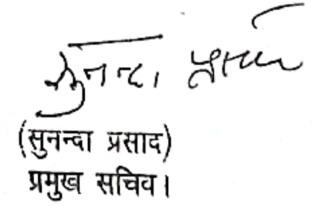 सुनन्दा प्रसाद
(सुनन्दा प्रसाद)
प्रमुख सचिव।